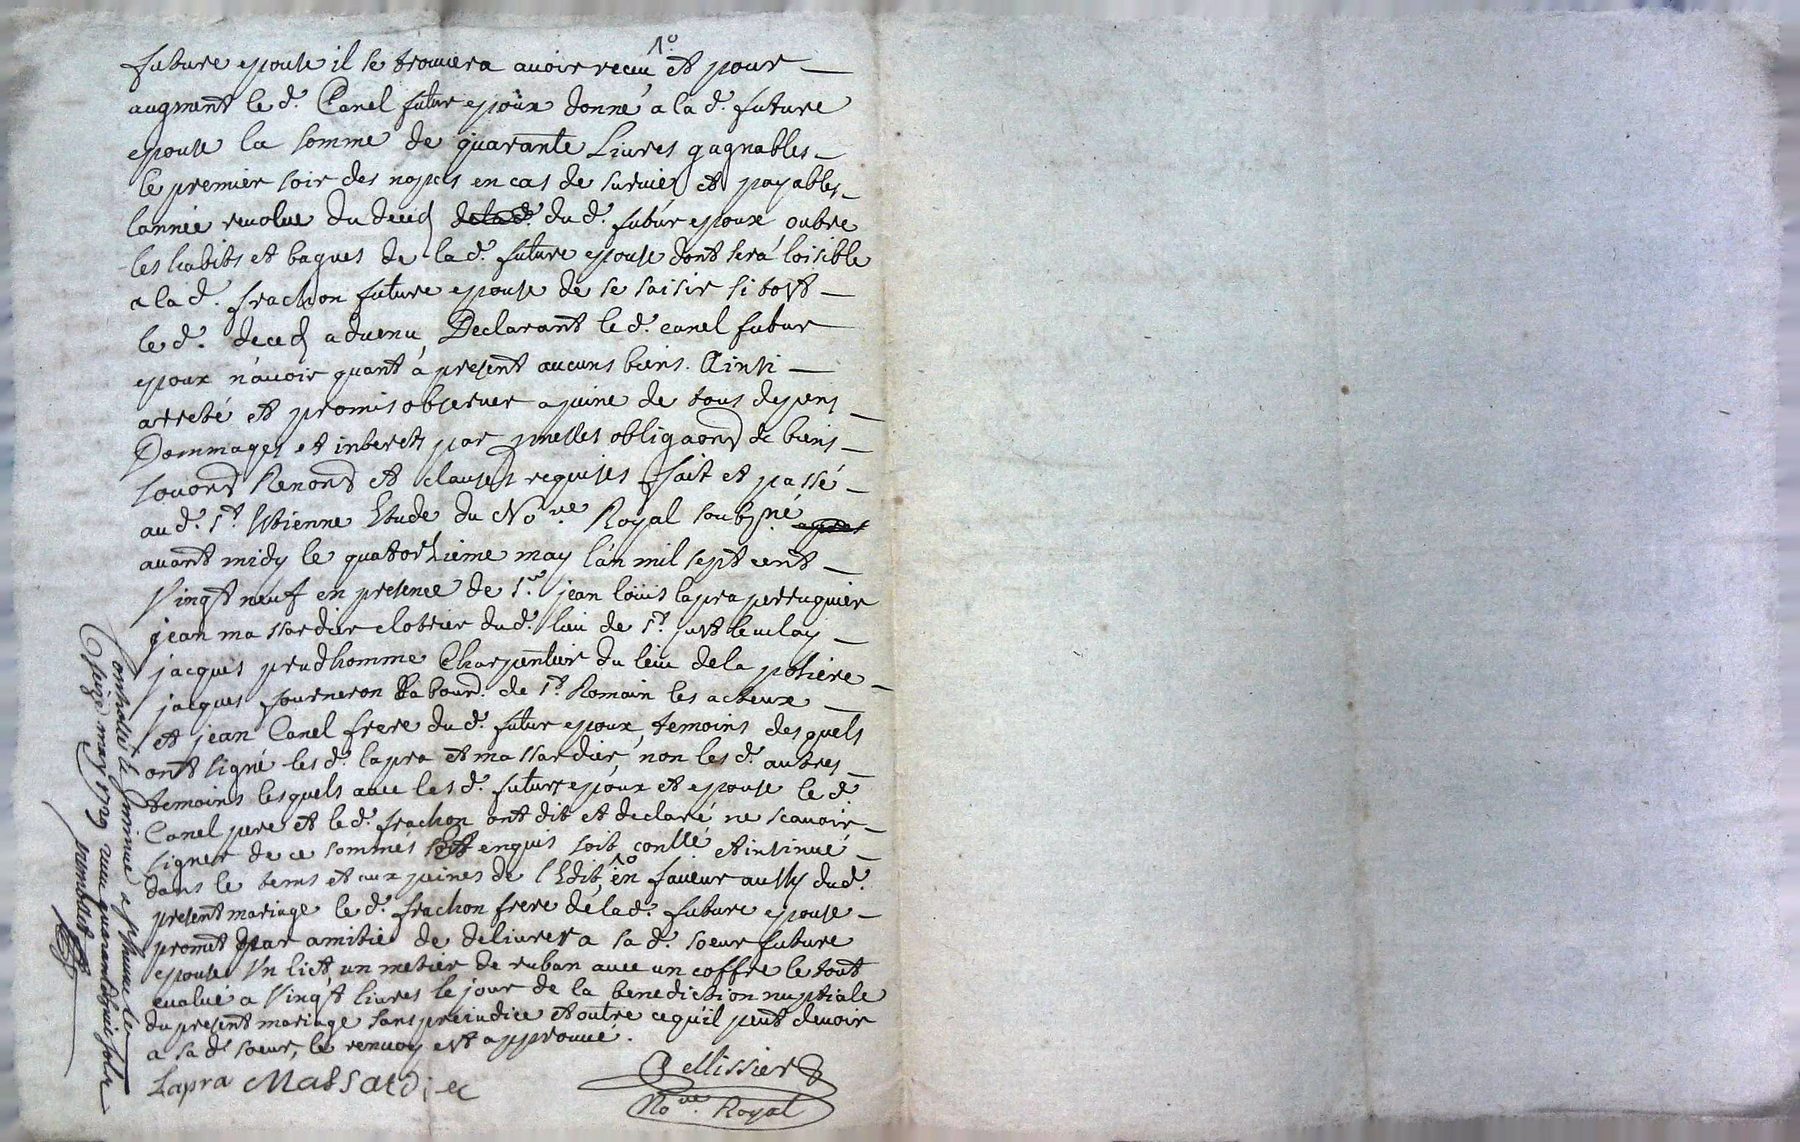 future epouse il se trouvera avoir reçeu 1º et pour
augment le d. Canel futur epoux donne a la d. future
epouse la somme de quarante Livres gagnables
le premier soir des nopces en cas de survie, et payables
lannée revolue du deced dela d. du d. futur epoux outre
les habits et bagues de la d. future epouse dont sera loisible
a la d. frachon future epouse de se saisir sitost
le d. deced advenu, Declarant le d. canel futur
epoux n'avoir quant à present aucuns biens. Ainsi
arreté et promis observer a peine de tous depens
Dommages et interets par obligaons de biens
et clauses requises fait et passé
au d. St. Estienne Etude du Nore Royal soubsné
avant midy le quatorzieme may lan mil sept cent
Vingt neuf en presence de sr. jean loüis lapra perruquier
jean massardier clotrier du d. lieu de st. just levelay
jacques prudhomme Charpentier du lieu dela
jacques fourneron labour. de st. Romain les acheux
et jean Canel frere du d. futur epoux, temoins desquels
ont signé les d. lapra et massardier, non les d. autres
temoins lesquels avec les d. futurs epoux et epouse le d.
Canel pere et led. frachon ont dit et declaré ne scavoir
signer de ce sommés et enquis soit conllé et insinué
dans le tems et aux peines de l'Edit, 1º en faveur aussy dud.
present mariage le d. frachon frere dela d. future epouse
promet par amitié de delivrer a sa d. soeur future
epouse Vn lict, un metier de ruban avec un coffre le tout
evalué a Vingt livres le jour de la benediction nuptiale
du present mariage sans prejudice et outre ce qu'il peut devoir
a sa de soeur, le renvoy est approuvé.
Lapra Massardier
Pellissier
Nore. Royal
Controllé le
may 1729